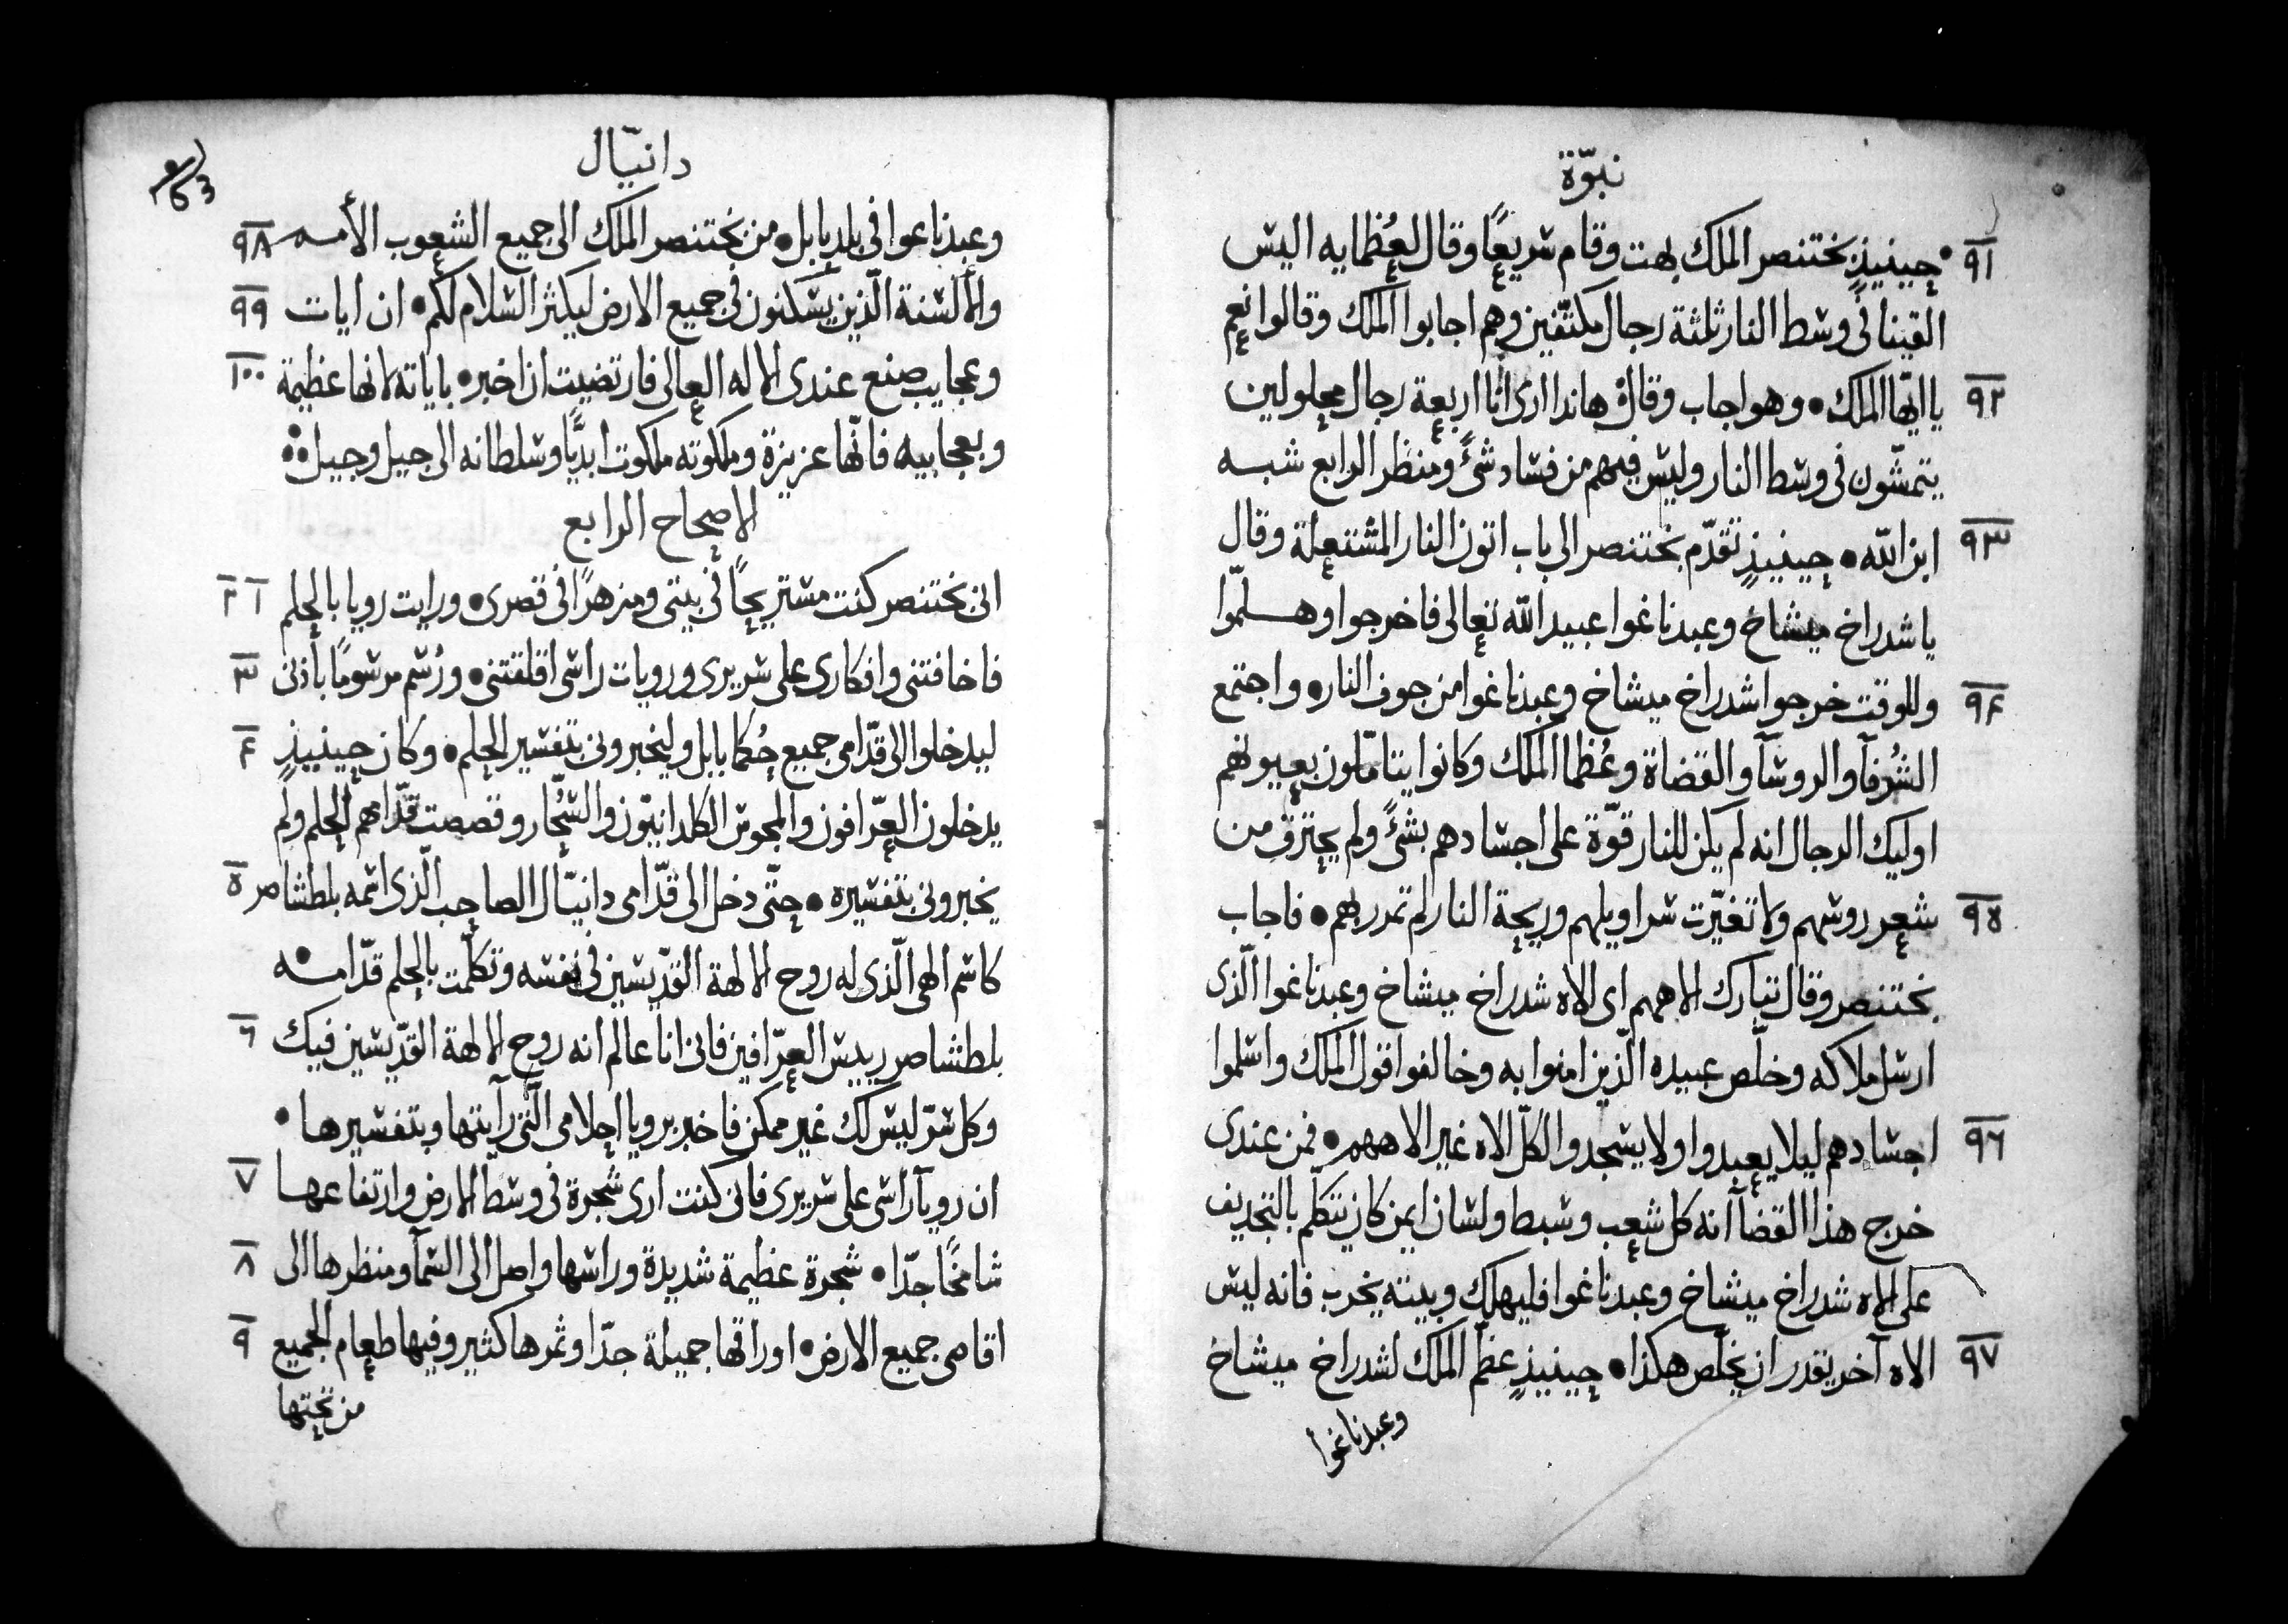 نبوّة
٩١ حينيذٍ بختنصر الملك بهت وقام سريعًا وقال لعُظمايه اليس
القينا في وسط النار ثلثة رجال مكتّفين وهم اجابوا الملك وقالوا نعم
٩٢ يا ايّها الملك • وهو اجاب وقال هاندا ارى انا اربعة رجال محلولين
يتمشّون في وسط النار وليس فيهم من فساد شئً ومنظر الرابع شبه
٩٣ ابن اللّه • حينيذٍ تقدّم بختنصر الى باب اتون النار المشتعلة وقال
يا شدراخ ميشاخ وعبدناغوا عبيد اللّه تعالى فاخرجوا وهلمّوا
٩٤ وللوقت خرجوا شدراخ ميشاخ وعبدناغوا من جوف النار • واجتمع
الشُرفآ والروسآ والقضاة وعُظما الملك وكانوا يتامّلون بعيونهم
اوليك الرجال انه لم يكن للنار قوّة على اجسادهم بشئً ولم يحترق من
٩٥ شعر روسهم ولا تغيّرت سراويلهم وريحة النار لم تمر بهم • فاجاب
بختنصر وقال تبارك الاههم اى الاه شدراخ ميشاخ وعبدناغوا الّذى
ارسل ملاكه وخلّص عبيده الّذين امنوا به وخالفوا قول الملك واسلموا
٩٦ اجسادهم ليلا يعبدوا ولا يسجدوا لكلّ الاه غير الاههم • فمن عندى
خرج هذا القضآ انه كل شعب وسبط ولسان ايمن كان يتكلم بالتجديف
على الاه شدراخ ميشاخ وعبدناغوا فليهلك وبيته يخرب فانه ليس
٩٧ الاه آخر يقدر ان يخلّص هكذا • حينيذٍ عظّم الملك لشدراخ ميشاخ
وعبدناغوا
دانيّال
وعبدناغوا فى بلد بابل • من بختنصر الملك الى جميع الشعوب الأمم ٩٨
والألسنة الّذين يسكنون فى جميع الارض ليكثر السلام لكم • ان ايات ٩٩
وعجايب صنع عندى الاله العالى فارتضيت ان اخبر • باياته لانها عظيمة ١٠٠
وبعجايبه فانّها عزيزة وملكوته ملكوت ابديًّا وسلطانه الى جيل وجيل
الاصحاح الرابع
انى بختنصر كنت مستريحًا فى بيتى ومزهرًا فى قصرى • ورايت رويا بالحلم ١ ٢
فاخافتنى وافكارى على سريرى ورويات راسى اقلقتنى • ورُسم مرسومًا بأذنى ٣
ليدخلوا الى قدّامى جميع حُكما بابل وليخبرونى بتفسير الحلم • وكان حينيذٍ ٤
يدخلون العرّافون والمجوس الكلدانيّون والسُحّار وقصصت قدّامهم الحلم ولم
يخبرونى بتفسيره • حتّى دخل الى قدّامى دانيّال الصاحب الّذى اسمه بلطشاصر ٥
كاسم الهى الّذى له روح الالهة القدّيسين فى نفسه وتكلّمت بالحلم قدّامه •
بلطشاصر رييس العرّافين فانى انا عالم انه روح الالهة القدّيسين فيك ٦
وكل سرّ ليس لك غير ممكن فاخبر برويا احلامى الّتى رأيتها وبتفسيرها •
ان رويآ راسى على سريرى فانى كنت ارى شجرة فى وسط الارض وارتفاعها ٧
شامخًا جدّا • شجرة عظيمة شديدة وراسها واصل الى السمآ ومنظرها الى ٨
اقاصى جميع الارض • اوراقها جميلة جدّا وثمرها كثير وفيها طعام للجميع ٩
من تحتها